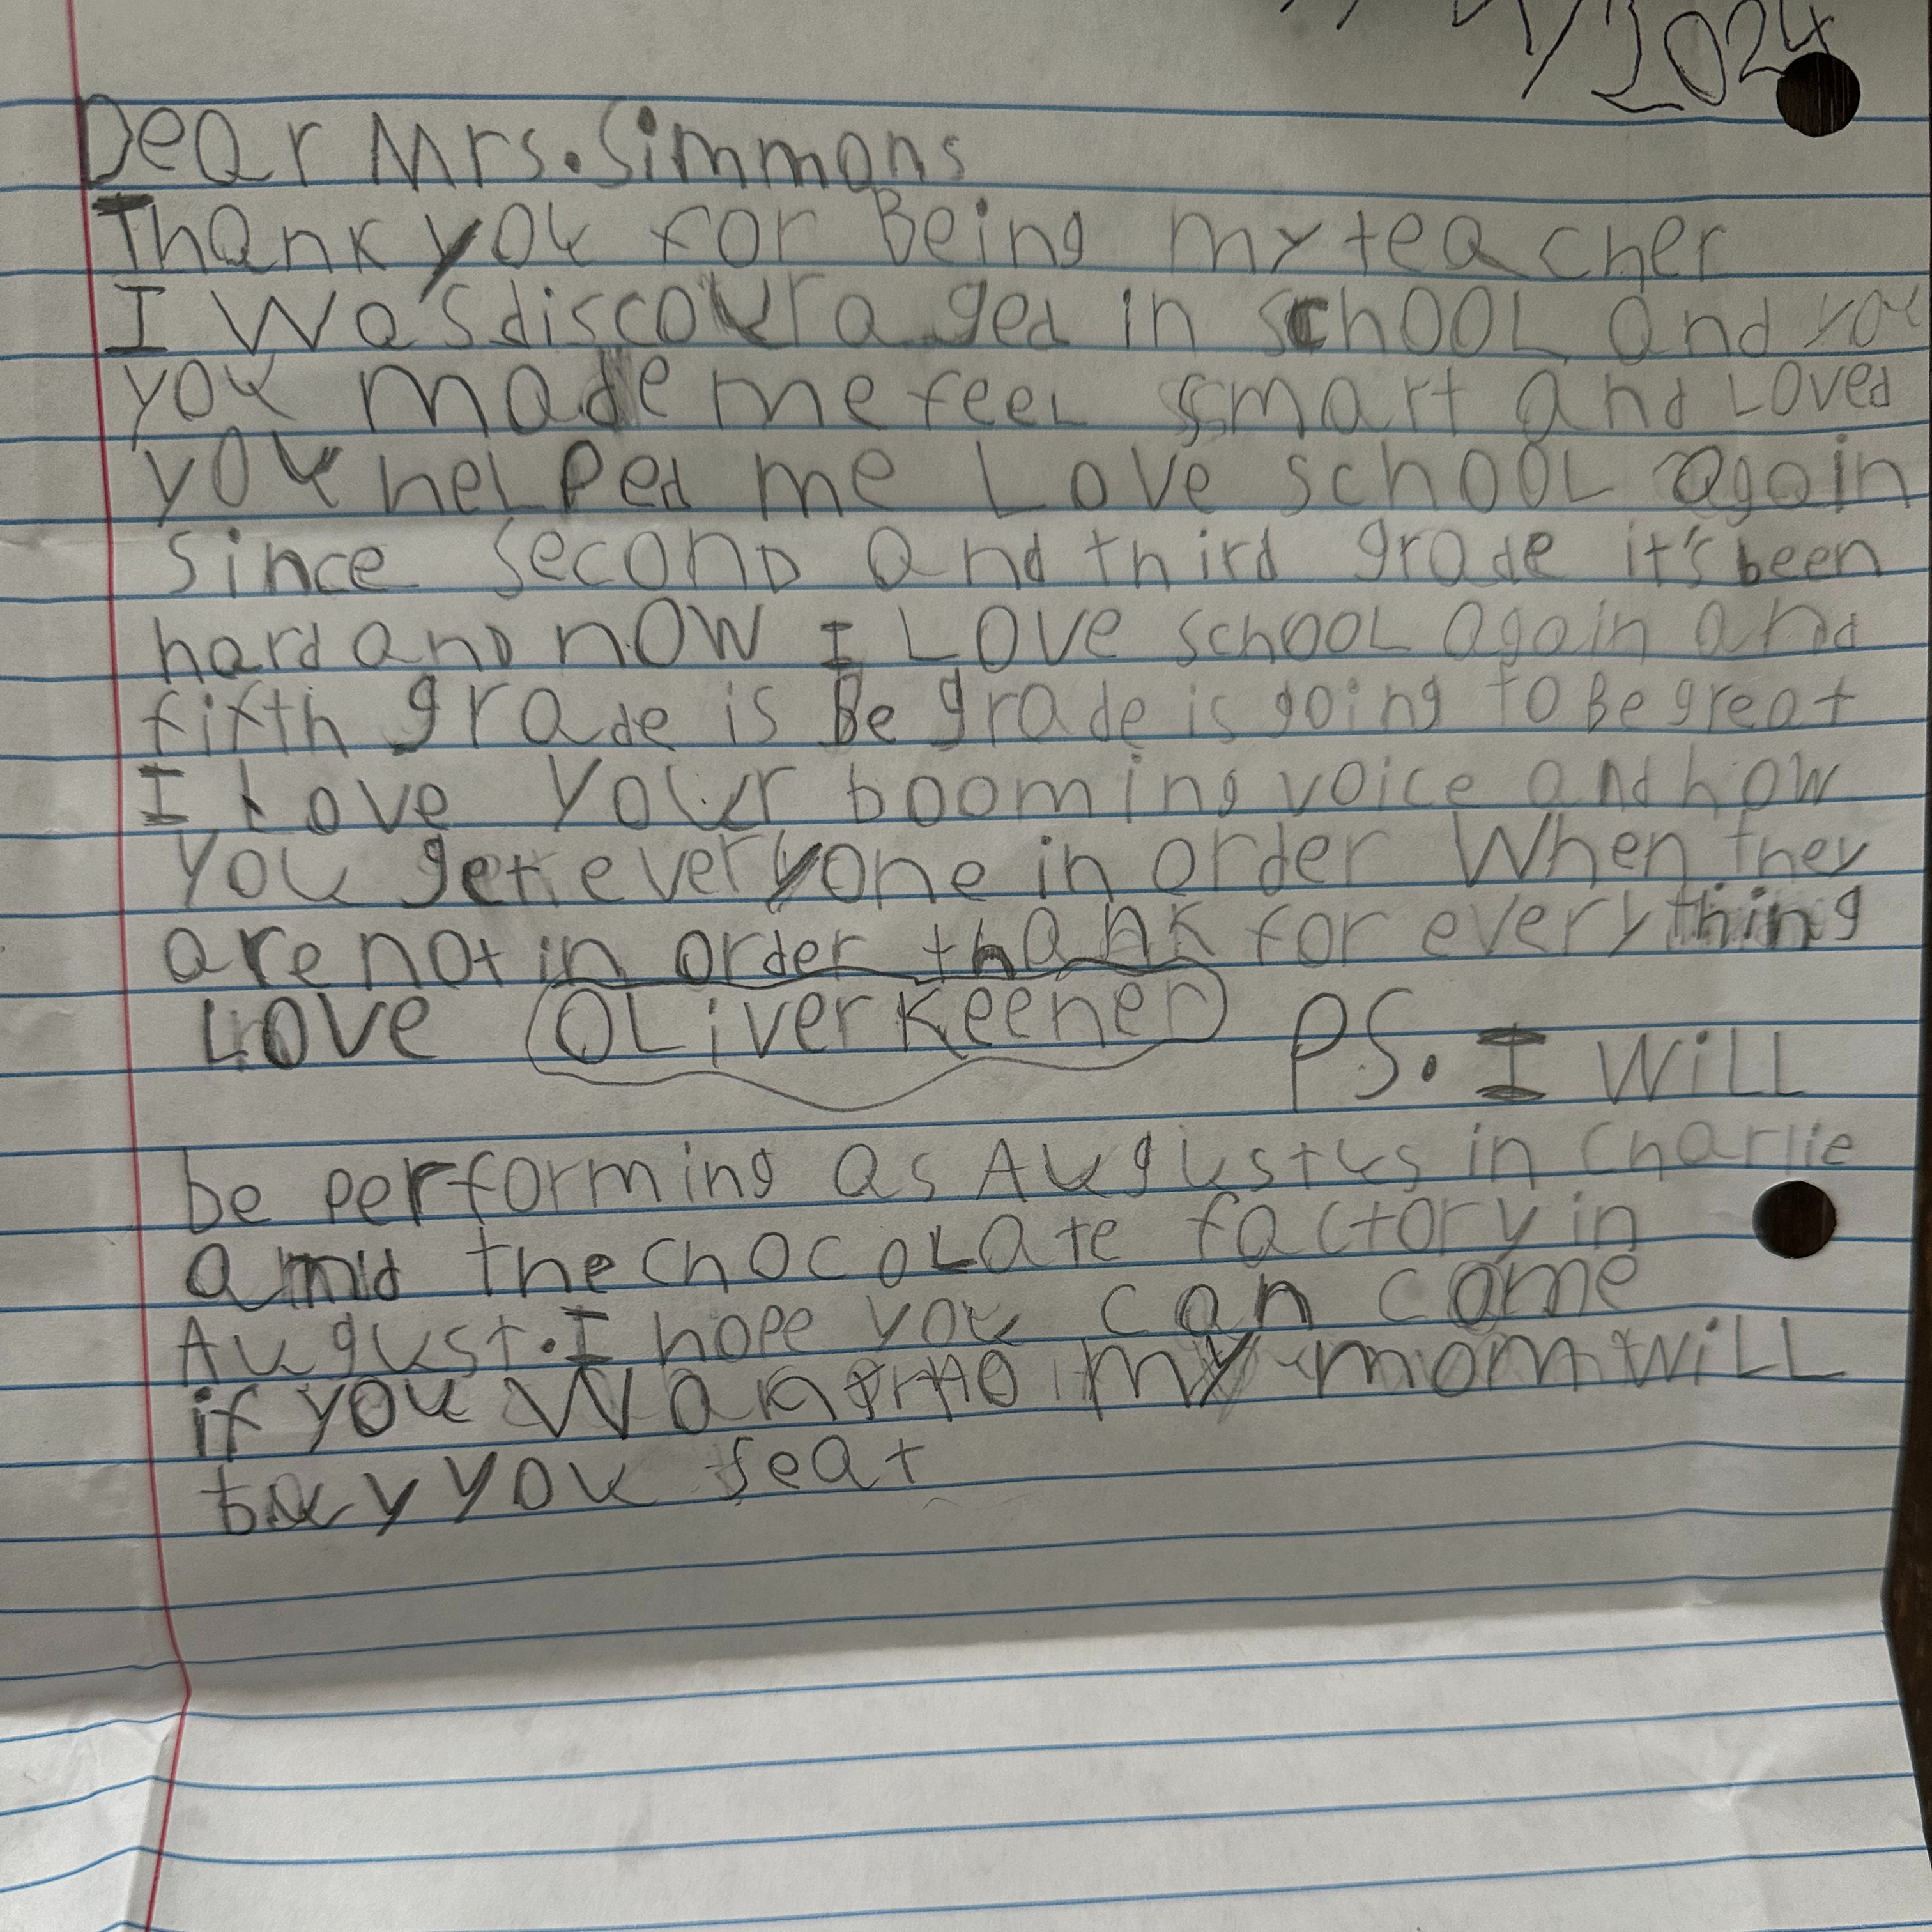 /2024
Dear Mrs. Simmons
Thank you for Being my teacher
I was discouraged in school and you
you made me feel smart and Loved
you helped me Love school again
since second and third grade it's been
hard and now I Love school again and
fifth grade is Be grade is going to Be great
I Love your booming voice and how
you get everyone in order When they
are not in order thank for everything
Love Oliver Keener PS. I will
be performing as Augustus in Charlie
and the chocolate factory in
August. I hope you can come
if you want to my mom will
buy you seat